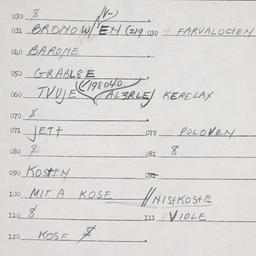 030 8
031 BRONOW/EN (219 032 FARVALOCIEN
040 BARONE
050 GRABLSE
060 TVDJE (198040 ALZRLE) KERELAX
070 8
071 JETT 072 POLOVEN
080 8 081 8
090 KOSTEN 091
100 MIT A KOSE // NISTKOSTE
110 8 111 VIOLE
120 KOSE 8